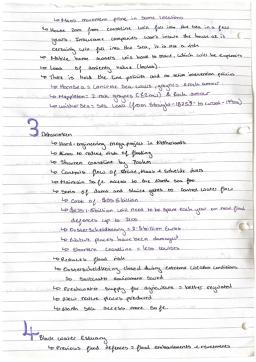 ↳ Mass movement prone in some locations
↳ House 20m from coastline will fall into the sea in a few
years. Insurance companies won't insure the house as it
certainly will fall into the sea, it is not a risk
↳ Mobile home owners will have to move, which will be expensive
↳ Loss of amenity value (below)
↳ There is hold the line policies and no active intervention policies
↳ Hornsea: Concrete Sea walls, groynes & rock armour
↳ Mappleton: 2 rock groynes & rock armour
↳ Withernsea: Sea wall (from straight to curved
3 Deltaworks
↳ Hard-engineering mega project in Netherlands
↳ Aims to reduce risk of flooding
↳ Shorten coastline by
↳ Controls flow of Rhine, Meuse & Schelde rivers
↳ Maintain safe access to the North sea for
↳ Series of dams and sluice gates to control water flow
↳ Cost of
will need to be spent each year on new flood
defences up to 2100
↳ Oosterscheldekering = billion Euros
↳ Natural places have been damaged
↳ Shortens coastline = less tourism
↳ Reduces flood risk
↳ Oosterscheldekering closed during extreme weather conditions
so saltwater environment saved
↳ Freshwater supply for agriculture = better regulated
↳ New nature places produced
↳ North Sea access more safe
4 Blackwater Estuary
↳ Previous flood defences = flood embankments & revetments